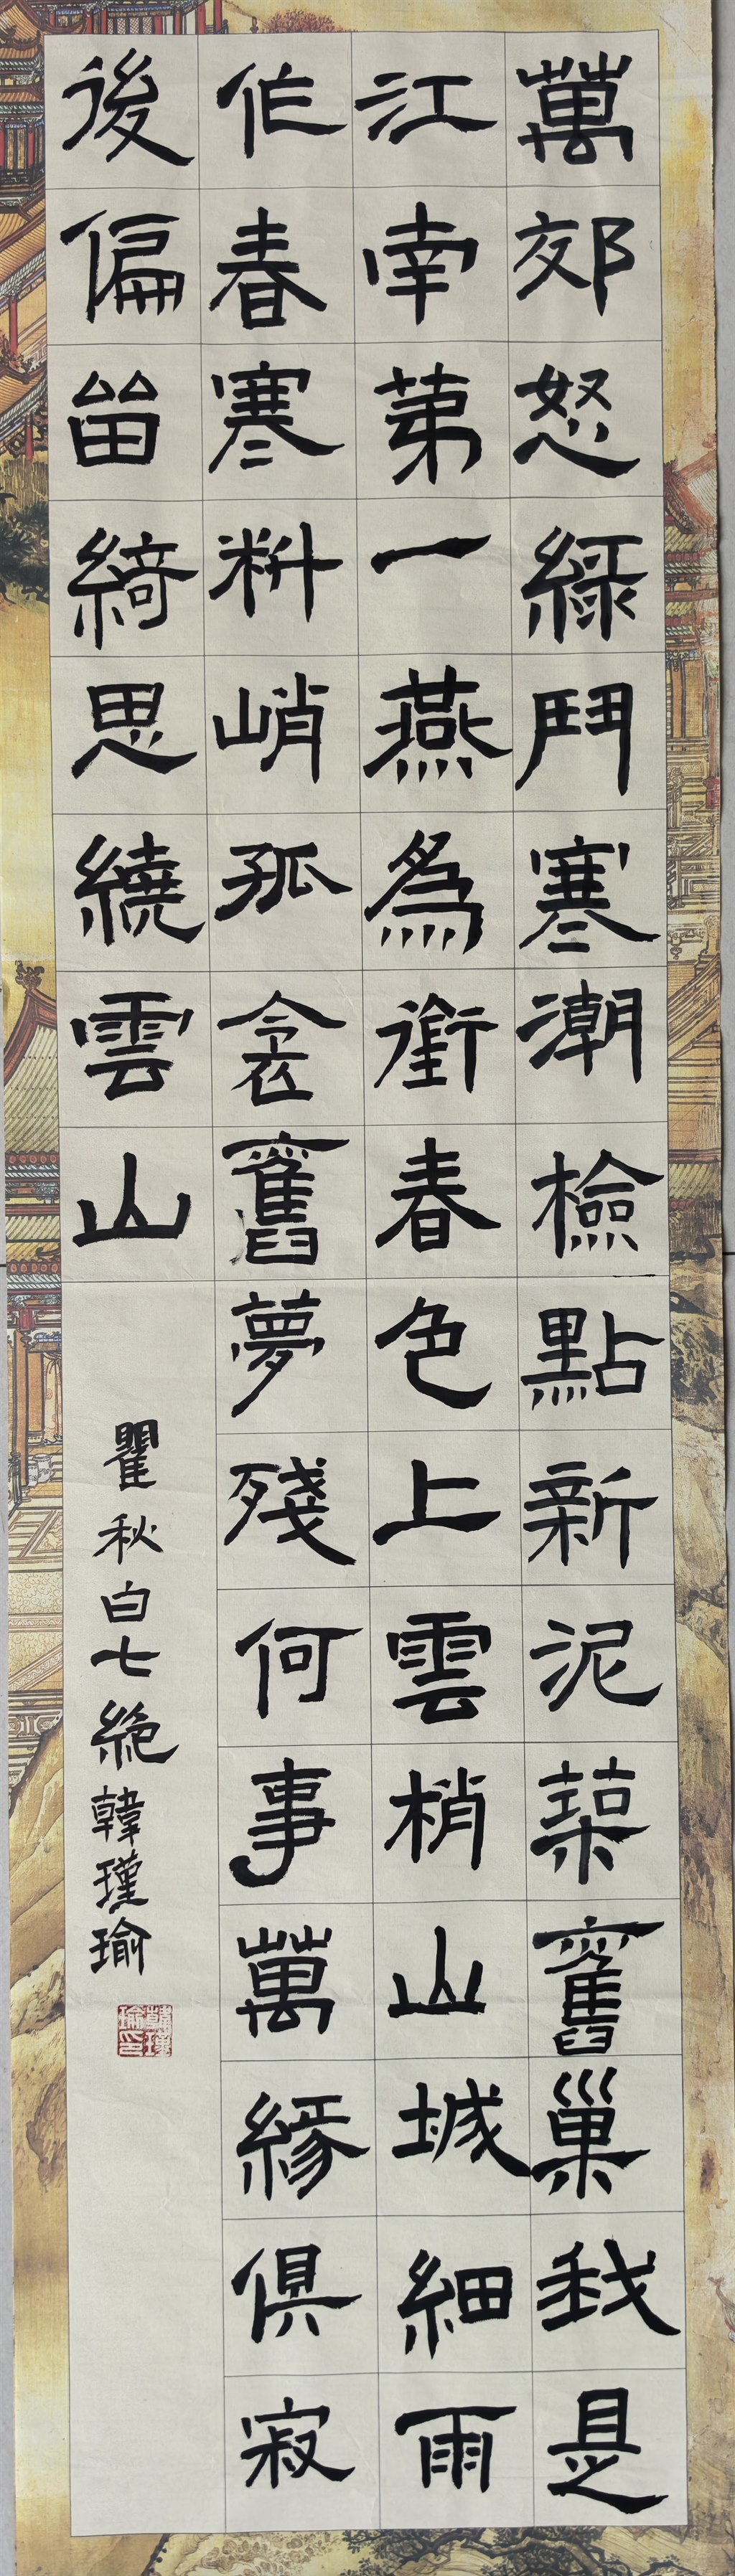 萬郊怒綠鬥寒潮檢點新泥築舊巢我是
江南第一燕為銜春色上雲梢山城細雨
作春寒料峭孤衾舊夢殘何事萬緣俱寂
後偏留綺思繞雲山
瞿秋白七絕韓瑾瑜
韓瑾瑜印